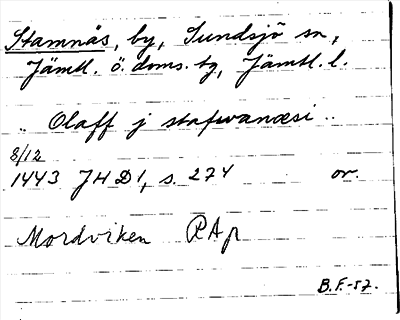 Stamnäs, by, Sundsjö sn,
Jämtl. ö. doms. tg, Jämtl. l.
.. Olaff j stafwanæsi ..
8/12
1443 JHD 1, s. 274 or.
Mordviken RAp
B.F.-52.